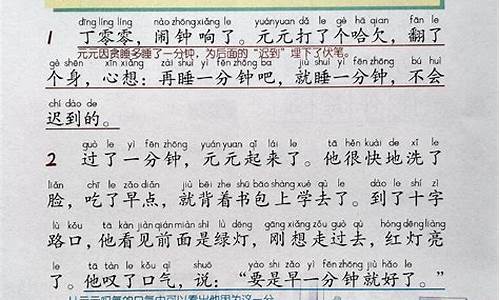 dīng líng líng nào zhōng xiǎng le yuányuan dǎ le gè hā qian fān le
1 丁零零，闹钟响了。元元打了个哈欠，翻了
元元因贪睡多睡了一分钟，为后面的“迟到”埋下了伏笔。
gè shēn xīn xiǎng zài shuì yì fēn zhōng ba jiù shuì yì fēn zhōng bú huì
个身，心想：再睡一分钟吧，就睡一分钟，不会
chí dào de
迟到的。
guò le yì fēn zhōng yuányuan qǐ lái le tā hěn kuài de xǐ le
2 过了一分钟，元元起来了。他很快地洗了
liǎn chī le zǎo diǎn jiù bēi zhe shū bāo shàng xué qù le dào le shí zì
脸，吃了早点，就背着书包上学去了。到了十字
lù kǒu tā kàn jiàn qián miàn shì lǜ dēng gāng xiǎng zǒu guò qù hóng dēng liàng
路口，他看见前面是绿灯，刚想走过去，红灯亮
le tā tàn le kǒu qì shuō yào shi zǎo yì fēn zhōng jiù hǎo le
了。他叹了口气，说：“要是早一分钟就好了。”